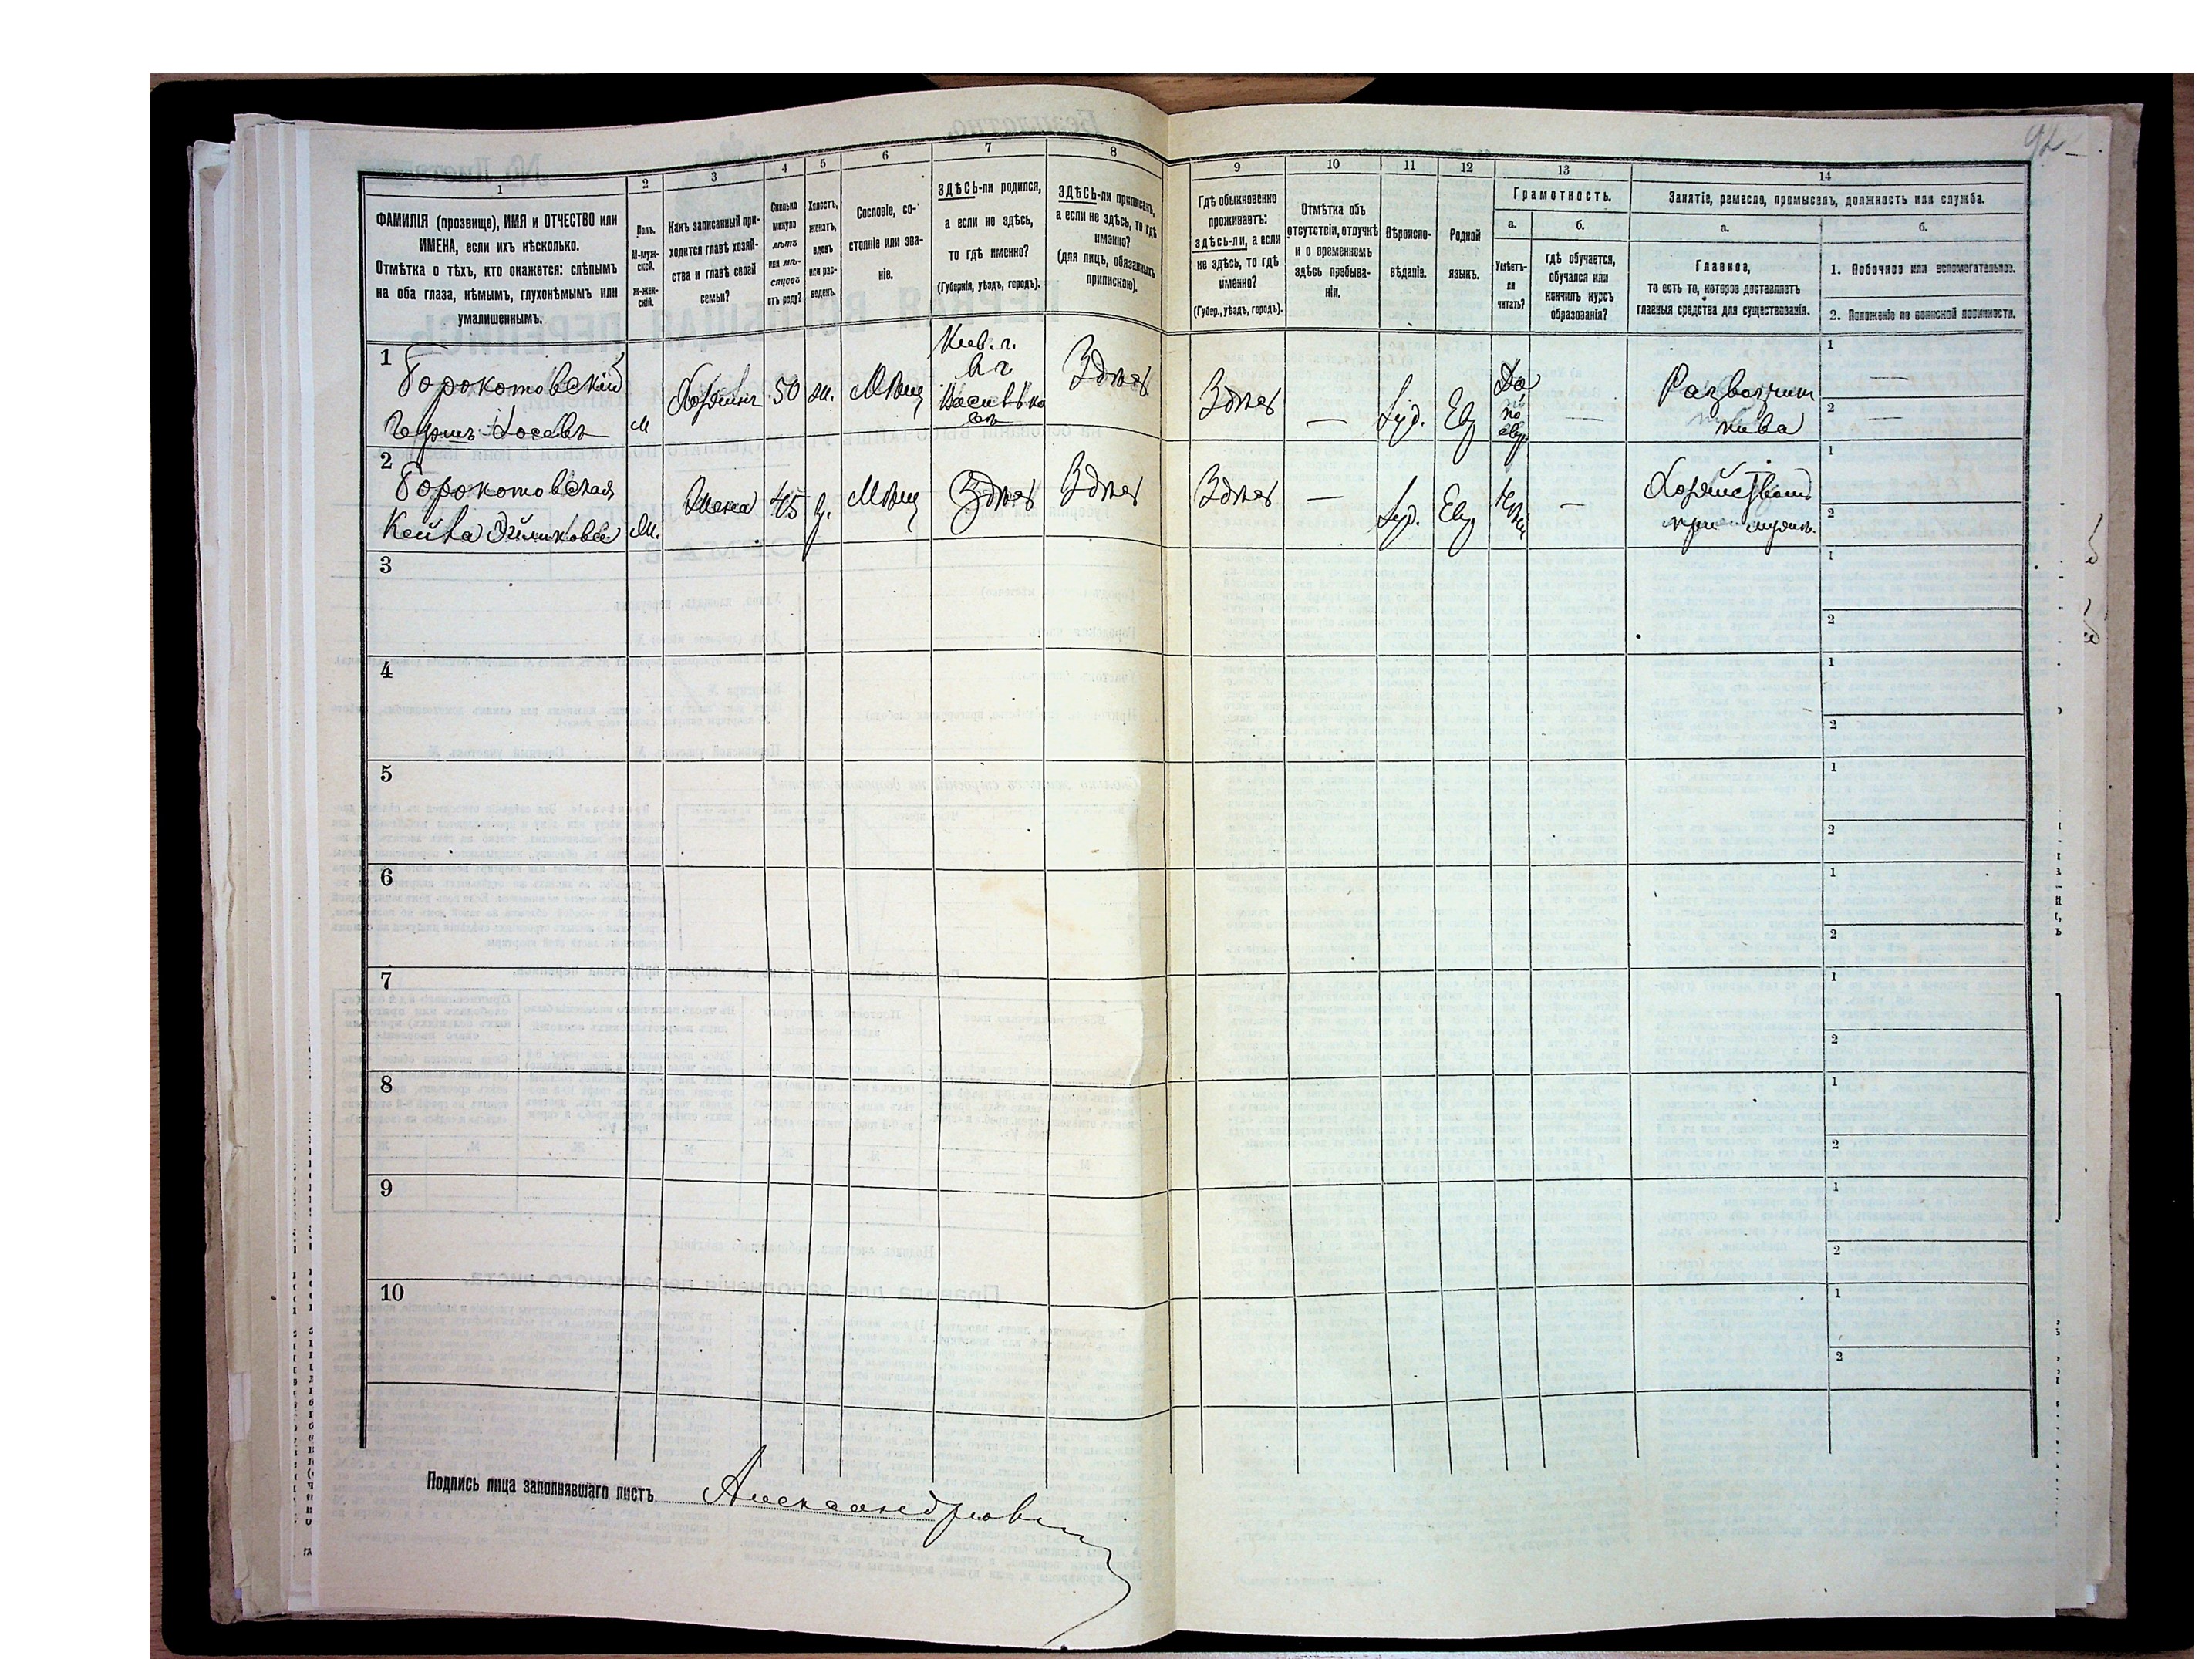 92
1
2
3
4
5
6
7
8
9
10
11
12
13
14
ФАМИЛІЯ (прозвище), ИМЯ и ОТЧЕСТВО или
ИМЕНА, если ихъ нѣсколько.
Отмѣтка о тѣхъ, кто окажется: слѣпымъ
на оба глаза, нѣмымъ, глухонѣмымъ или
умалишеннымъ.
Полъ.
М-муж-
ской.
Ж-жен-
скій.
Какъ записанный при-
ходится главѣ хозяй-
ства и главѣ своей
семьи?
Сколько
минуло
лѣтъ
или мѣ-
сяцевъ
отъ роду?
Холостъ,
женатъ,
вдовъ
или раз-
веденъ.
Сословіе, со-
стояніе или зва-
ніе.
ЗДѢСЬ-ли родился,
а если не здѣсь,
то гдѣ именно?
(Губернія, уѣздъ, городъ).
ЗДѢСЬ-ли приписанъ,
а если не здѣсь, то гдѣ
именно?
(для лицъ, обязанныхъ
припискою).
Гдѣ обыкновенно
проживаетъ:
здѣсь-ли, а если
не здѣсь, то гдѣ
именно?
(Губер., уѣздъ, городъ).
Отмѣтка объ
отсутствіи, отлучкѣ
и о временномъ
здѣсь пребыва-
ніи.
Вѣроиспо-
вѣданіе.
Родной
языкъ.
Грамотность.
а.
б.
Умѣетъ-
ли
читать?
гдѣ обучается,
обучался или
кончилъ курсъ
образованія?
Занятіе, ремесло, промыселъ, должность или служба.
а.
б.
Главное,
то есть то, которое доставляетъ
главныя средства для существованія.
1. Побочное или вспомогательное.
2. Положеніе по воинской повинности.
1
Борокотовскій
Гершъ Іосевъ
М
Хозяинъ
50
ж.
Мѣщ
Кіев. г.
Васильков
Здѣсь
Здѣсь
—
Іуд.
Евр
Да
по
евр.
—
Развозчик
пива
1
—
2
—
2
Борокотовская
Кейла
Ж.
Жена
45
з.
Мѣщ
Здѣсь
Здѣсь
Здѣсь
—
Іуд.
Евр
Нѣт
—
при мужѣ.
1
2
3
1
2
4
1
2
5
1
2
6
1
2
7
1
2
8
1
2
9
1
2
10
1
2
Подпись лица заполнявшаго листъ